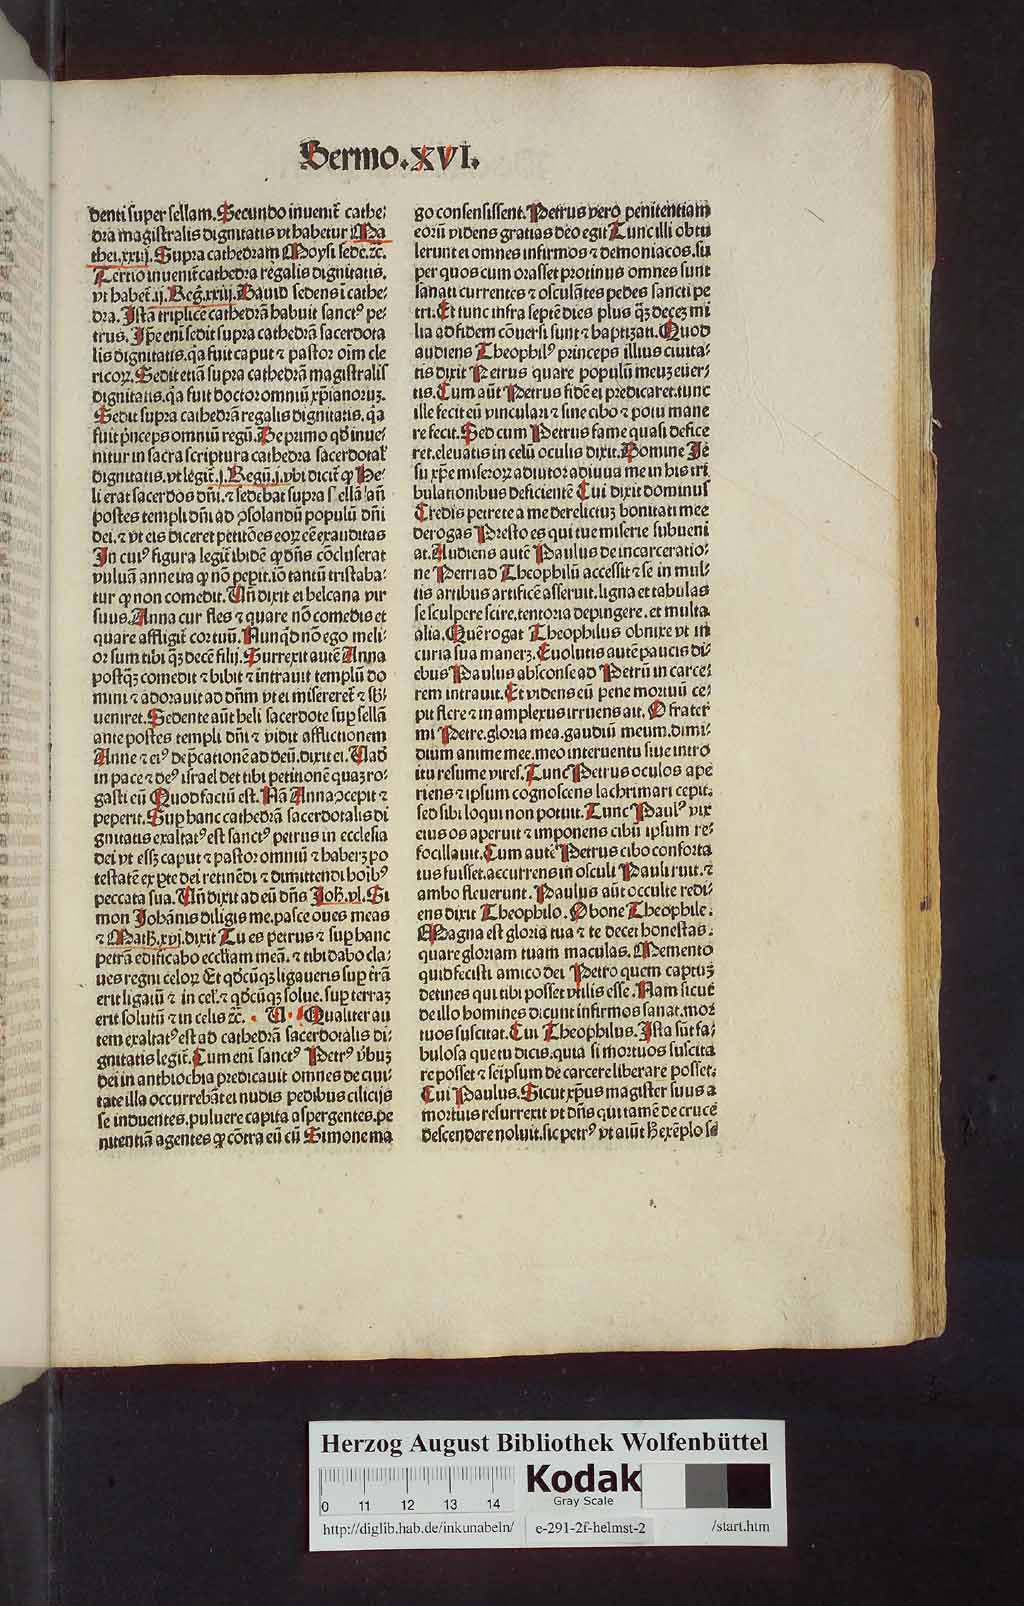 Sermo.XVI.
denti super sellam. Secundo inuenit̃ cathe⸗
dra magistralis dignitatis vt habetur Ma
thei.xxiij. Supra cathedram Moysi sede.⁊c̃.
Tertio inuenit̃ cathedra regalis dignitatis.
vt habet̃.ij. Reg̃.xxiij. Dauid sedens ĩ cathe⸗
dra. Istã triplicẽ cathedrã habuit sanctꝰ pe⸗
trus. Ip̃e eni sedit supra cathedrã sacerdota
lis dignitatis. q̃a fuit caput ⁊ pastor oim cle
ricoꝝ. Sedit etiã supra cathedrã magistralis
dignitatis. q̃a fuit doctor omniũ xp̃ianoruꝫ.
Sedit supra cathedrã regalis dignitatis. q̃a
fuit p̃nceps omniũ regũ. De primo qđ inue⸗
nitur in sacra scriptura cathedra sacerdotal̃
dignitatis. vt legit̃.j. Regũ.j. vbi dicit̃ ꝙ He⸗
li erat sacerdos dñi. ⁊ sedebat supra sellã añ
postes templi dñi ad ꝯsolandũ populũ dñi
dei. ⁊ vt eis diceret petitões eoꝝ eẽ exauditas
In cuiꝰ figura legit̃ ibidẽ ꝙ dñs cõcluserat
vuluã anne ita ꝙ nõ pepit. iõ tantũ tristaba⸗
tur ꝙ non comedit. Vñ dixit ei helcana vir
suus. Anna cur fles ⁊ quare nõ comedis et
quare affligit̃ cor tuũ. Nunqͥd nõ ego meli⸗
or sum tibi qꝫ̃ decẽ filij. Surrexit autẽ Anna
postqꝫ̃ comedit ⁊ bibit ⁊ intrauit templũ do
mini ⁊ adorauit ad dñm vt ei misereret̃ ⁊ sb̃⸗
ueniret. Sedente aũt heli sacerdote suꝑ sellã
ante postes templi dñi ⁊ vidit afflictionem
Anne ⁊ eiꝰ dep̃cationẽ ad deũ. dixit ei. Uad̃
in pace ⁊ deꝰ israel det tibi petitionẽ quaꝫ ro⸗
gasti eũ Quod factũ est. Nã Anna ꝯcepit ⁊
peperit. Suꝑ hanc cathedrã sacerdotalis di
gnitatis exaltatꝰ est sanctꝰ petrus in ecclesia
dei vt esꝫ̃ caput ⁊ pastor omniũ ⁊ haberꝫ po
testatẽ ex ꝑte dei retinẽdi ⁊ dimittendi hoibꝰ
peccata sua. Vñ dixit ad eũ dñs Joh̃.vl. Si
mon Johãnis diligis me. pasce oues meas
⁊ Math̃.xvj. dixit Tu es petrus ⁊ suꝑ hanc
petrã edificabo eccl̃iam meã. ⁊ tibi dabo cla⸗
ues regni celoꝝ Et qđcũqꝫ ligaueris suꝑ t̃rã
erit ligatũ ⁊ in cel̃. ⁊ qđcũqꝫ solue. suꝑ terraꝫ
erit solutũ ⁊ in celis ⁊c̃. Qualiter au
tem exaltatꝰ est ad cathedrã sacerdotalis di⸗
gnitatis legit̃. Cum eni sanctꝰ Petrꝰ v̾buꝫ
dei in anthiochia predicauit omnes de ciui⸗
tate illa occurrebãt ei nudis pedibus cilicijs
se induentes. puluere capita aspergentes. pe
nitentiã agentes ꝙ cõtra eũ cũ Simone ma
go consensissent. Petrus vero penitentiam
eorũ videns gratias deo egit Tunc illi obtu
lerunt ei omnes infirmos ⁊ demoniacos. su
per quos cum orasset protinus omnes sunt
sanati currentes ⁊ osculãtes pedes sancti pe
tri. Et tunc infra septẽ dies plus qꝫ̃ decez mi
lia ad fidem cõuersi sunt ⁊ baptizati. Quod
audiens Theophilꝰ princeps illius ciuita⸗
tis dixit Petrus quare populũ meuꝫ euer⸗
tis. Cum aũt Petrus fidẽ ei predicaret. tunc
ille fecit eũ vinculari ⁊ sine cibo ⁊ potu mane
re fecit. Sed cum Petrus fame quasi defice
ret. eleuatis in celũ oculis dixit. Domine Je
su xp̃e miseroꝝ adiutor adiuua me in his tri
bulationibus deficientẽ Cui dixit dominus
Credis petre te a me derelictuꝫ bonitati mee
derogas Presto es qui tue miserie subueni
at. Audiens autẽ Paulus de incarceratio⸗
ne Petri ad Theophilũ accessit ⁊ se in mul⸗
tis artibus artificẽ asseruit. ligna et tabulas
se sculpere scire. tentoria depingere. et multa
alia. Quẽ rogat Theophilus obnixe vt in
curia sua manerꝫ. Euolutis autẽ paucis di⸗
ebus Paulus absconse ad Petrũ in carce⸗
rem intrauit. Et videns eũ pene mortuũ ce⸗
pit flere ⁊ in amplexus irruens ait. O frater
mi Petre. gloria mea. gaudiũ meum. dimi⸗
dium anime mee. meo interuentu siue intro
itu resume vires. Tunc Petrus oculos ape
riens ⁊ ipsum cognoscens lachrimari cepit.
sed sibi loqui non potuit. Tunc Paulꝰ vix
eius os aperuit ⁊ imponens cibũ ipsum re⸗
focillauit. Cum autẽ Petrus cibo conforta
tus fuisset. accurrens in osculũ Pauli ruit. ⁊
ambo fleuerunt. Paulus aũt occulte redi⸗
ens dixit Theophilo. O bone Theophile.
Magna est gloria tua ⁊ te decet honestas.
quare gloriam tuam maculas. Memento
quid fecisti amico dei Petro quem captuꝫ
detines qui tibi posset vtilis esse. Nam sicut
de illo homines dicunt infirmos sanat. mor
tuos suscitat. Cui Theophilus. Ista sũt fa⸗
bulosa que tu dicis. quia si mortuos suscita
re posset ⁊ seip̃sum de carcere liberare posset.
Cui Paulus. Sicut xp̃us magister suus a
mortuis resurrexit vt dñs qui tamẽ de cruce
descendere noluit. sic petrꝰ vt aiũt h̃ exẽplo se
Herzog August Bibliothek Wolfenbüttel
0 11 12 13 14
Kodak
Gray Scale
http://diglib.hab.de/inkunabeln/ e-291-2f-helmst-2 /start.htm